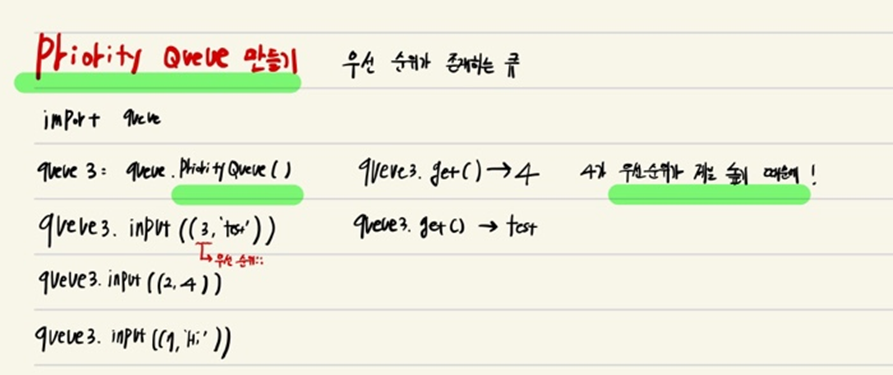 Priority Queue 만들기 우선 순위가 존재하는 큐
import queue
queue 3: queue.PriorityQueue() queue3.get() → 4 4가 우선순위가 제일 높기 때문에!
queue3.input((3,'test')) queue3.get() → test
↳ 우선 순위::
queue3.input((2,4))
queue3.input((1,'Hi'))